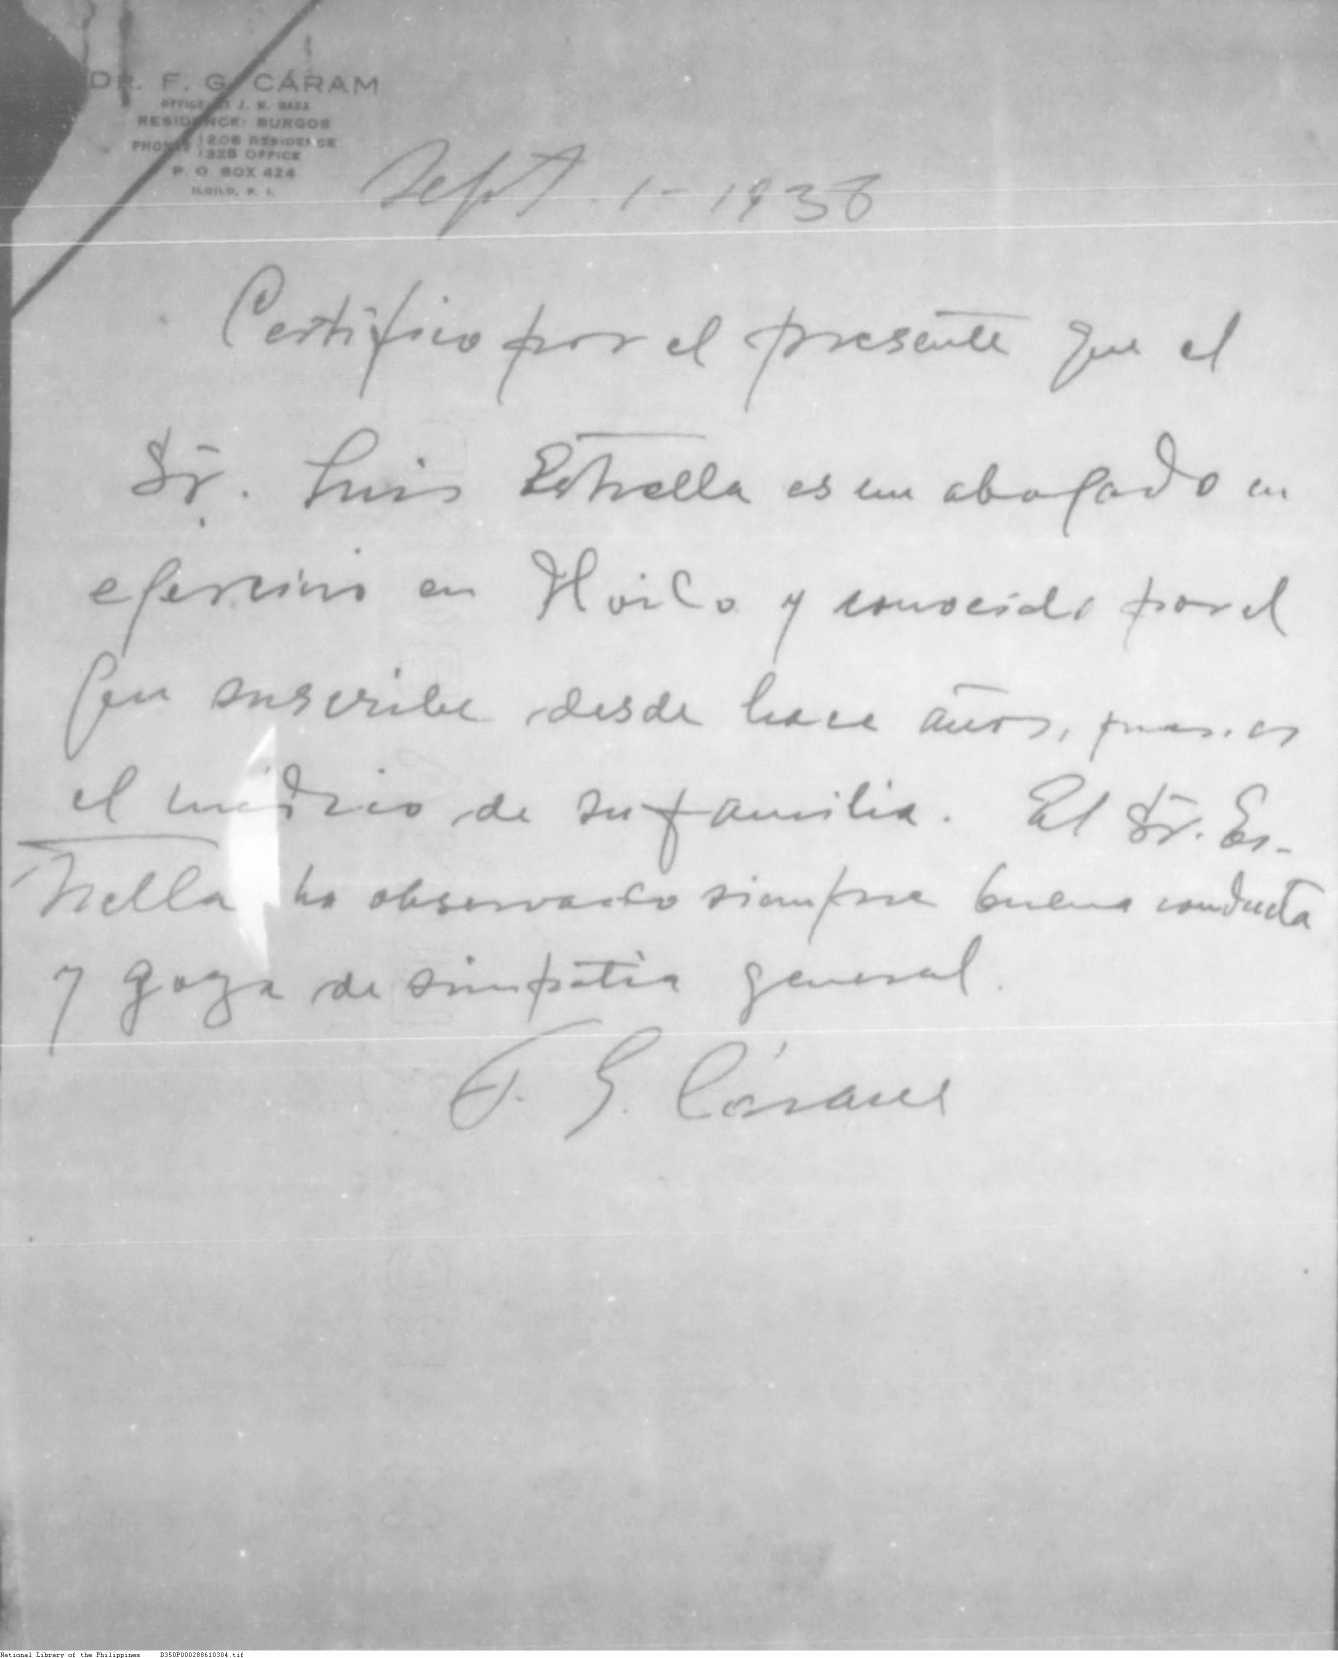 DR. F. G. CÁRAM
OFFICE: J. M. BASA
RESIDENCE: BURGOS
PHONES 1206 RESIDENCE
1328 OFFICE
P. O. BOX 424
ILOILO, P. I.
Sept. 1-1938
Certifico por el presente que el
Sr. Luis Estrella es un abogado en
ejercicio en Iloilo y conocido por el
que suscribe desde hace años, pues es
el médico de su familia. El Sr. Es-
trella ha observado siempre buena conducta
y goza de simpatia general.
F. G. Cáram
National Library of the Philippines B350P000288610304.tif